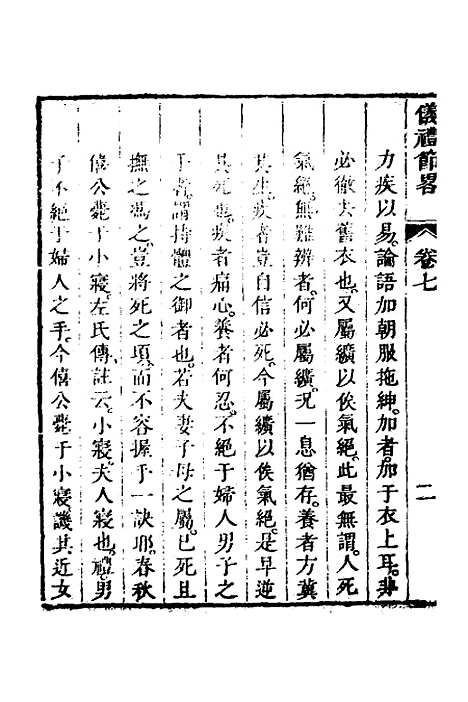 儀禮節畧
卷七
二
力疾以易。論語加朝服拖紳。加者。加于衣上耳。非
必徹去舊衣也。又屬纊以俟氣絕。此最無謂。人死
氣絕。無難辨者。何必屬纊。況一息猶存。養者方冀
其生。疾者豈自信必死。今屬纊以俟氣絕。是早逆
其死也。疾者痛心。養者何忍。不絕于婦人男子之
手者。謂持體之御者也。若夫妻子母之屬。已死且
撫之馮之。豈將死之項。而不容握手一訣耶。春秋
僖公薨于小寢。左氏傳註云。小寢。夫人寢也。禮。男
子不絕于婦人之手。今僖公薨于小寢。譏其近女